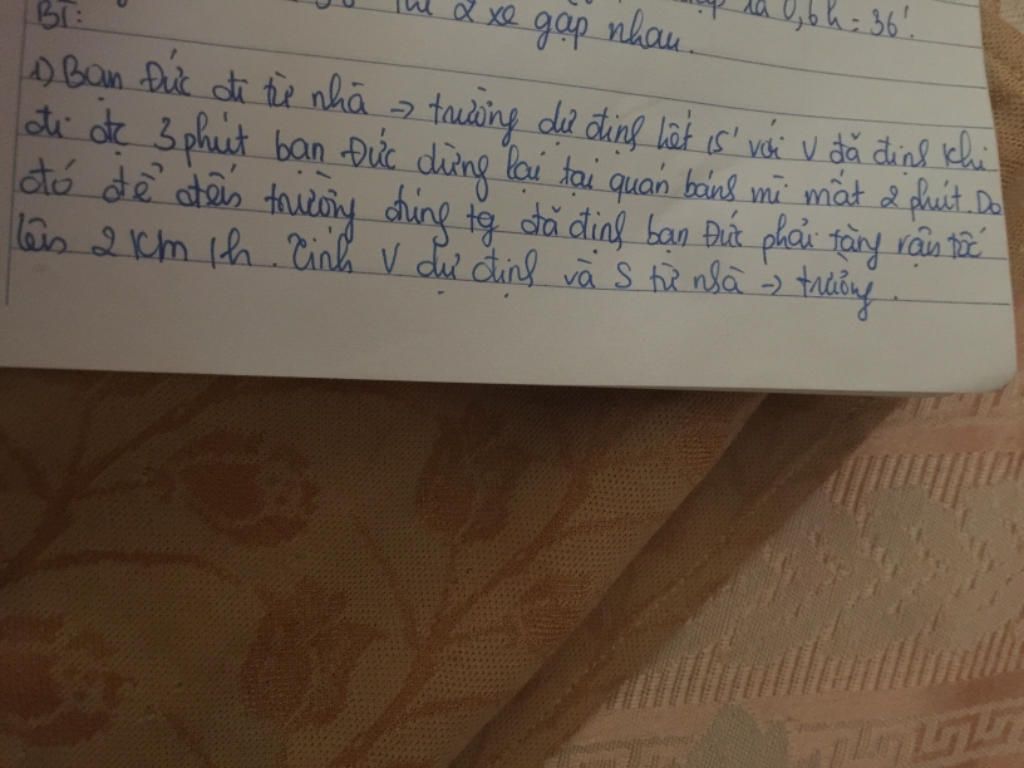 là 0,6h = 36'.
BT: thì 2 xe gặp nhau.
1) Bạn Đức đi từ nhà → trường dự định hết 15' với V đã định khi
đi đc 3 phút bạn Đức dừng lại tại quán bánh mì mất 2 phút. Do
đó để đến trường đúng tg đã định bạn Đức phải tăng vận tốc
lên 2 km/h. Tính V dự định và S từ nhà → trường.